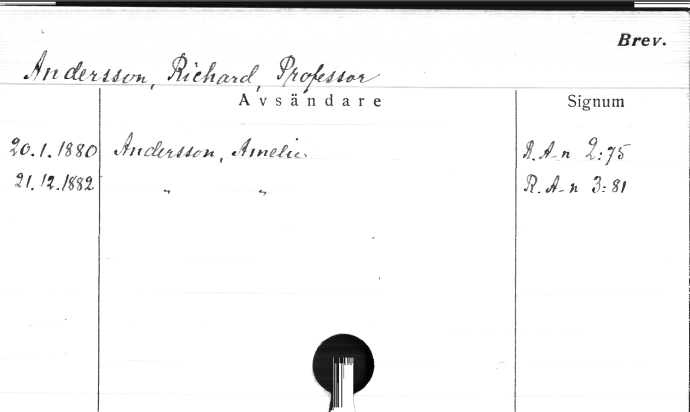 Brev.
Andersson, Richard, Professor
Avsändare Signum
20.1.1880 Andersson, Amelie R. A-n 2:75
21.12.1882 " " R. A-n 3:81